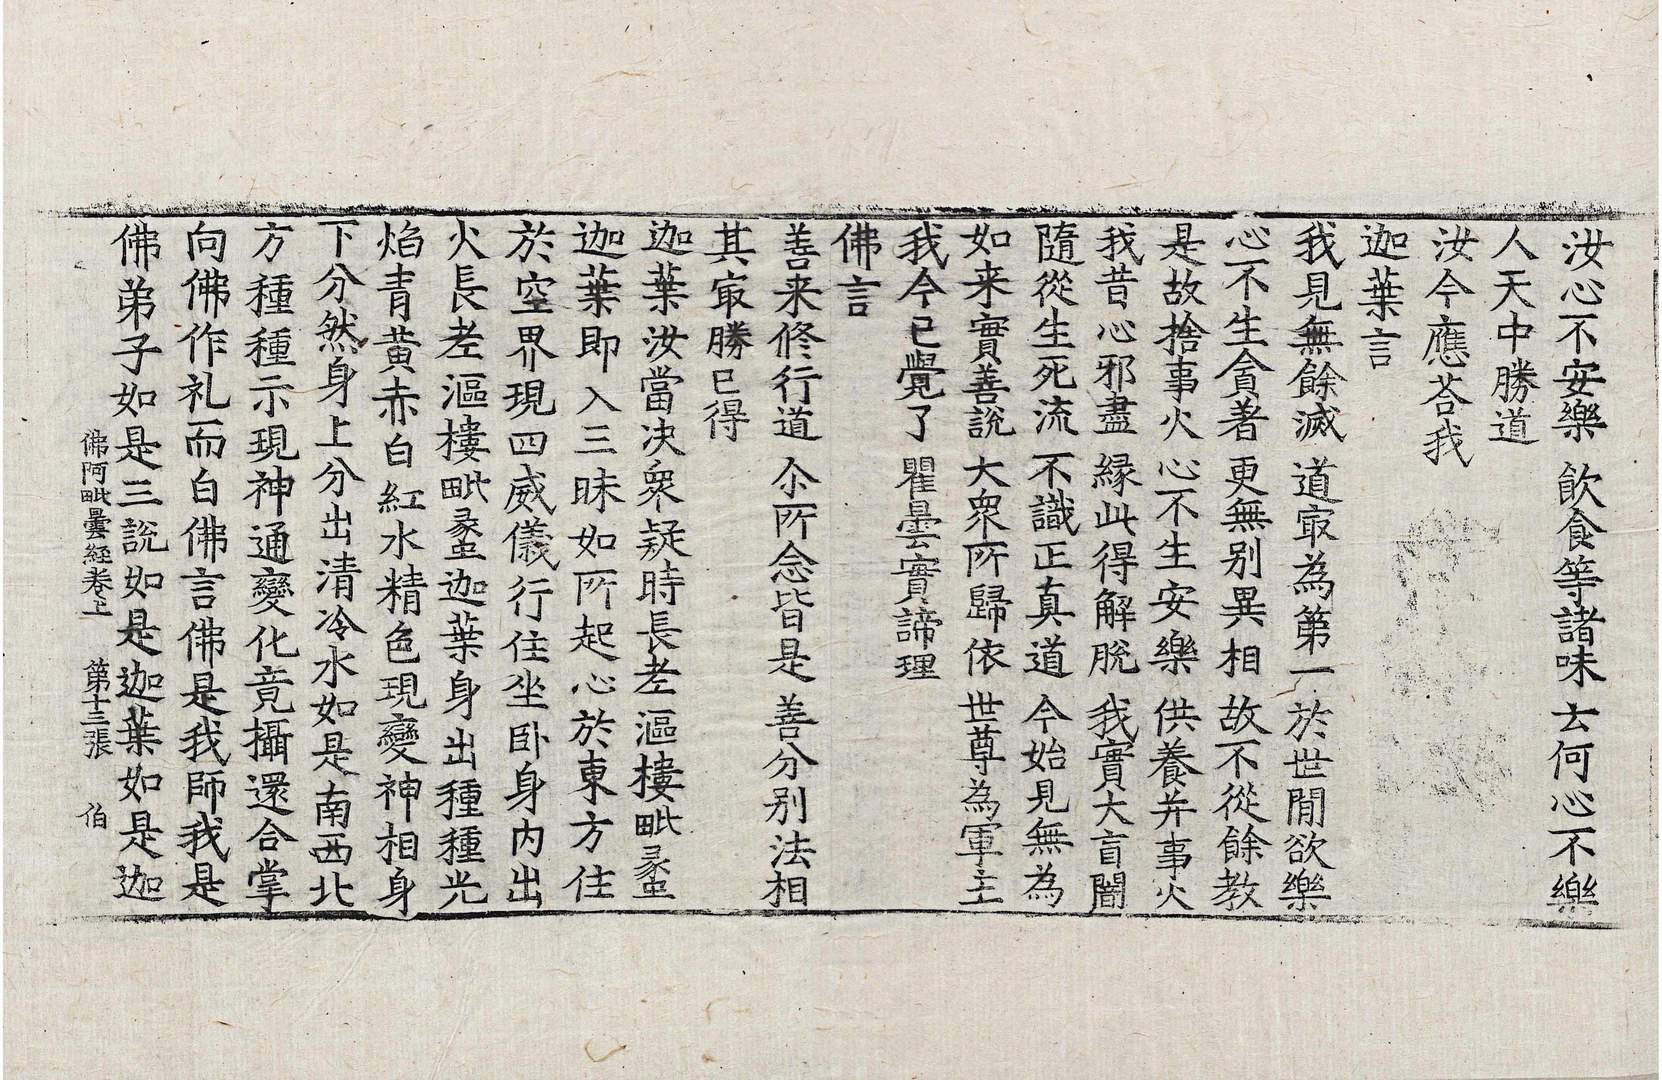 汝心不安樂 飲食等諸味 云何心不樂
人天中勝道
汝今應荅我
迦葉言
我見無餘滅 道㝡為第一 於世閒欲樂
心不生貪著 更無别異相 故不從餘教
是故捨事火 心不生安樂 供養并事火
我昔心邪盡 縁此得解脫 我實大盲闇
隨從生死流 不識正真道 今始見無為
如来實善說 大衆所歸依 世尊為軍主
我今已覺了 瞿曇實諦理
佛言
善来修行道 尒所念皆是 善分别法相
其㝡勝已得
迦葉汝當决衆疑時長老漚樓毗蠡
迦葉即入三昧如所起心於東方住
於空界現四威儀行住坐卧身内出
火長老漚樓毗蠡迦葉身出種種光
焰青黄赤白紅水精色現變神相身
下分然身上分出清冷水如是南西北
方種種示現神通變化竟攝還合掌
向佛作礼而白佛言佛是我師我是
佛弟子如是三說如是迦葉如是迦
佛阿毗曇經卷上 第十三張 伯